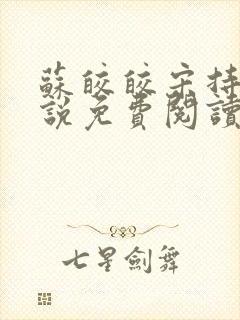 蘇皎皎宋持
說免費閱讀
七星劍舞